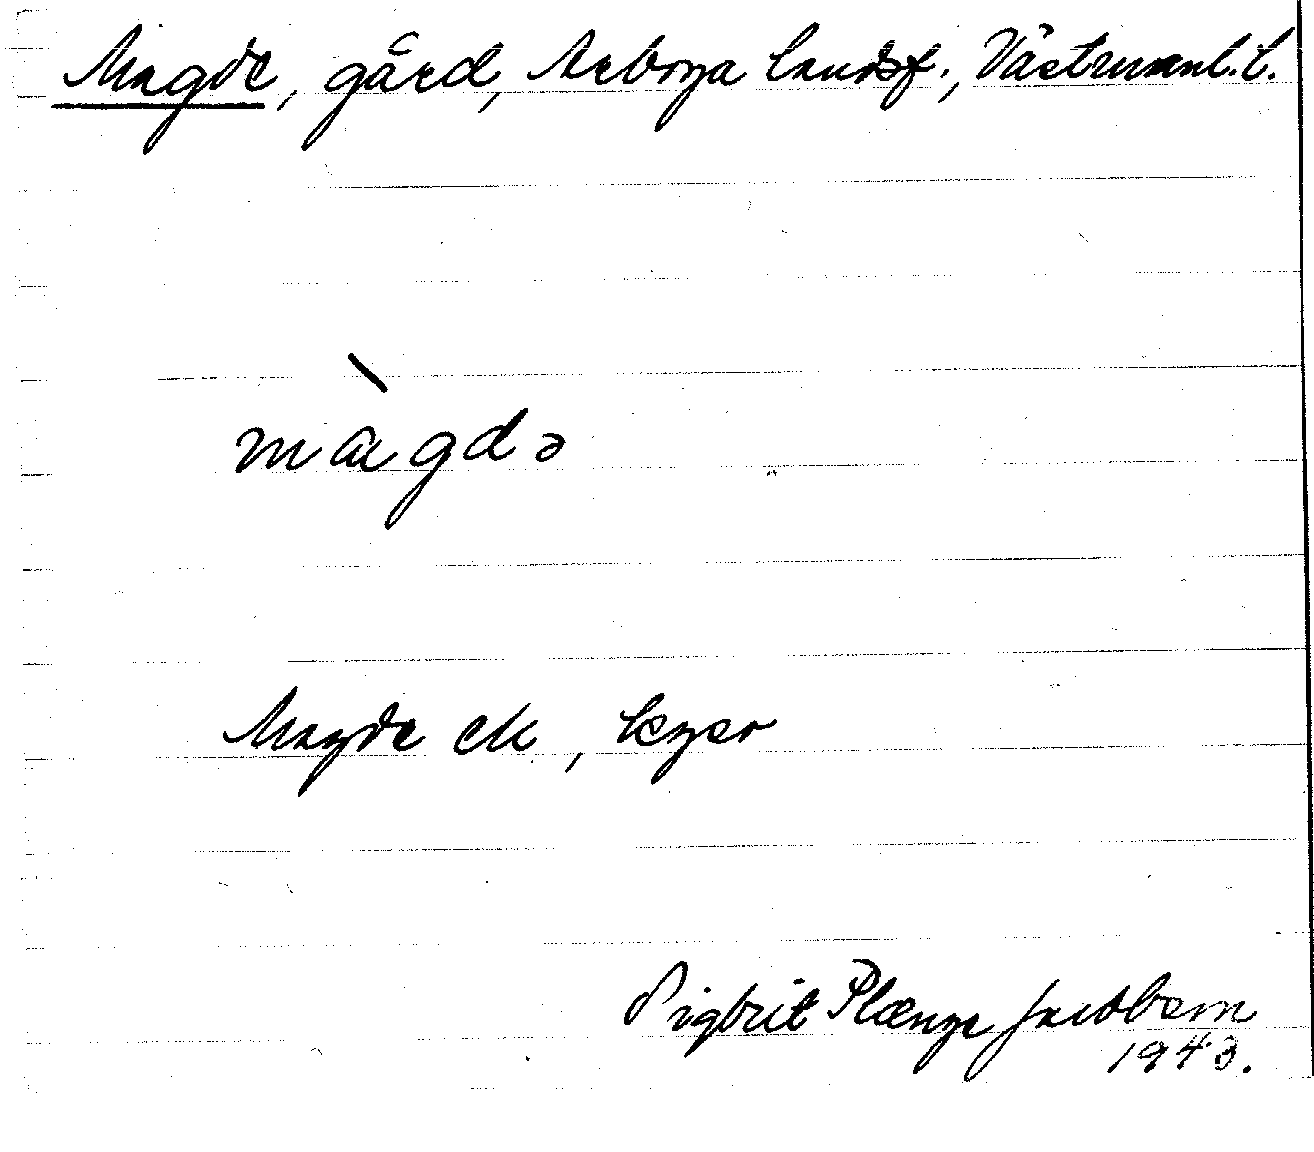 Magde, gård, Arboga landsf., Västmanl. l.
màgdə
Magde ek, lager
Sigbrit Plænge Jacobson
1943.